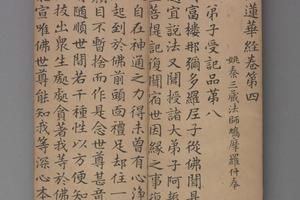 蓮華經卷第四
姚秦三藏法師鳩摩羅什奉
弟子受記品第八
富樓那彌多羅尼子從佛聞是
宜說法又聞授諸大弟子阿耨
菩提記復聞宿世因緣之事復
自在神通之力得未曾有心淨
起到於佛前頭面禮足却住一
顏目不暫捨而作是念世尊甚奇
隨順世間若干種性以方便知
拔出眾生處處貪著我等於佛
宣唯佛世尊能知我等深心本